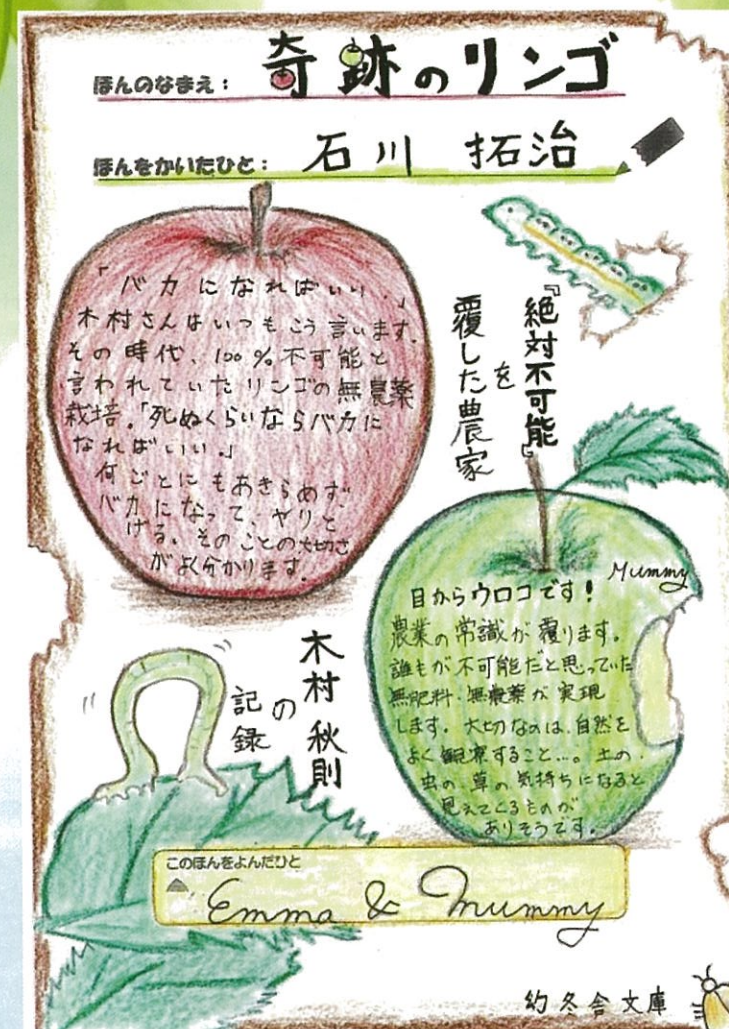 ほんのなまえ： 奇跡のリンゴ
ほんをかいたひと： 石川 拓治
「バカになればいい。」
木村さんはいつもこう言います。
その時代、100%不可能と
言われていたリンゴの無農薬
栽培。「死ぬくらいならバカに
なればいい。」
何ごとにもあきらめず、
バカになって、ヤリと
げる。そのことの大切さ
がよく分かります。
『絶対不可能』
を
覆した農家
Mummy
目からウロコです！
農業の常識が覆ります。
誰もが不可能だと思っていた
無肥料・無農薬が実現
します。大切なのは、自然を
よく観察すること…。土の、
虫の、草の気持ちになると
見えてくるものが
ありそうです。
木村 秋則
の
記録
このほんをよんだひと
Emma & Mummy
幻冬舎文庫